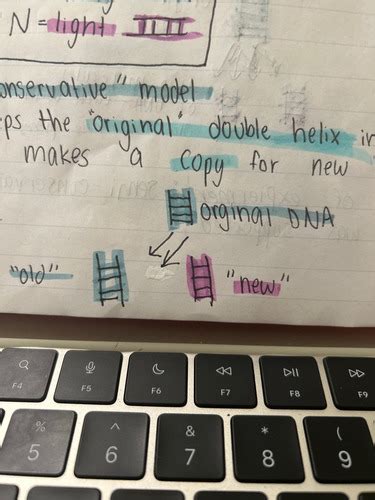 N = light
onservative" model
eps the "original" double helix in
makes a copy for new
orginal DNA
"old"
"new"
F4
F5
F6
F7
F8
F9
%
5
^
6
&
7
*
8
(
9